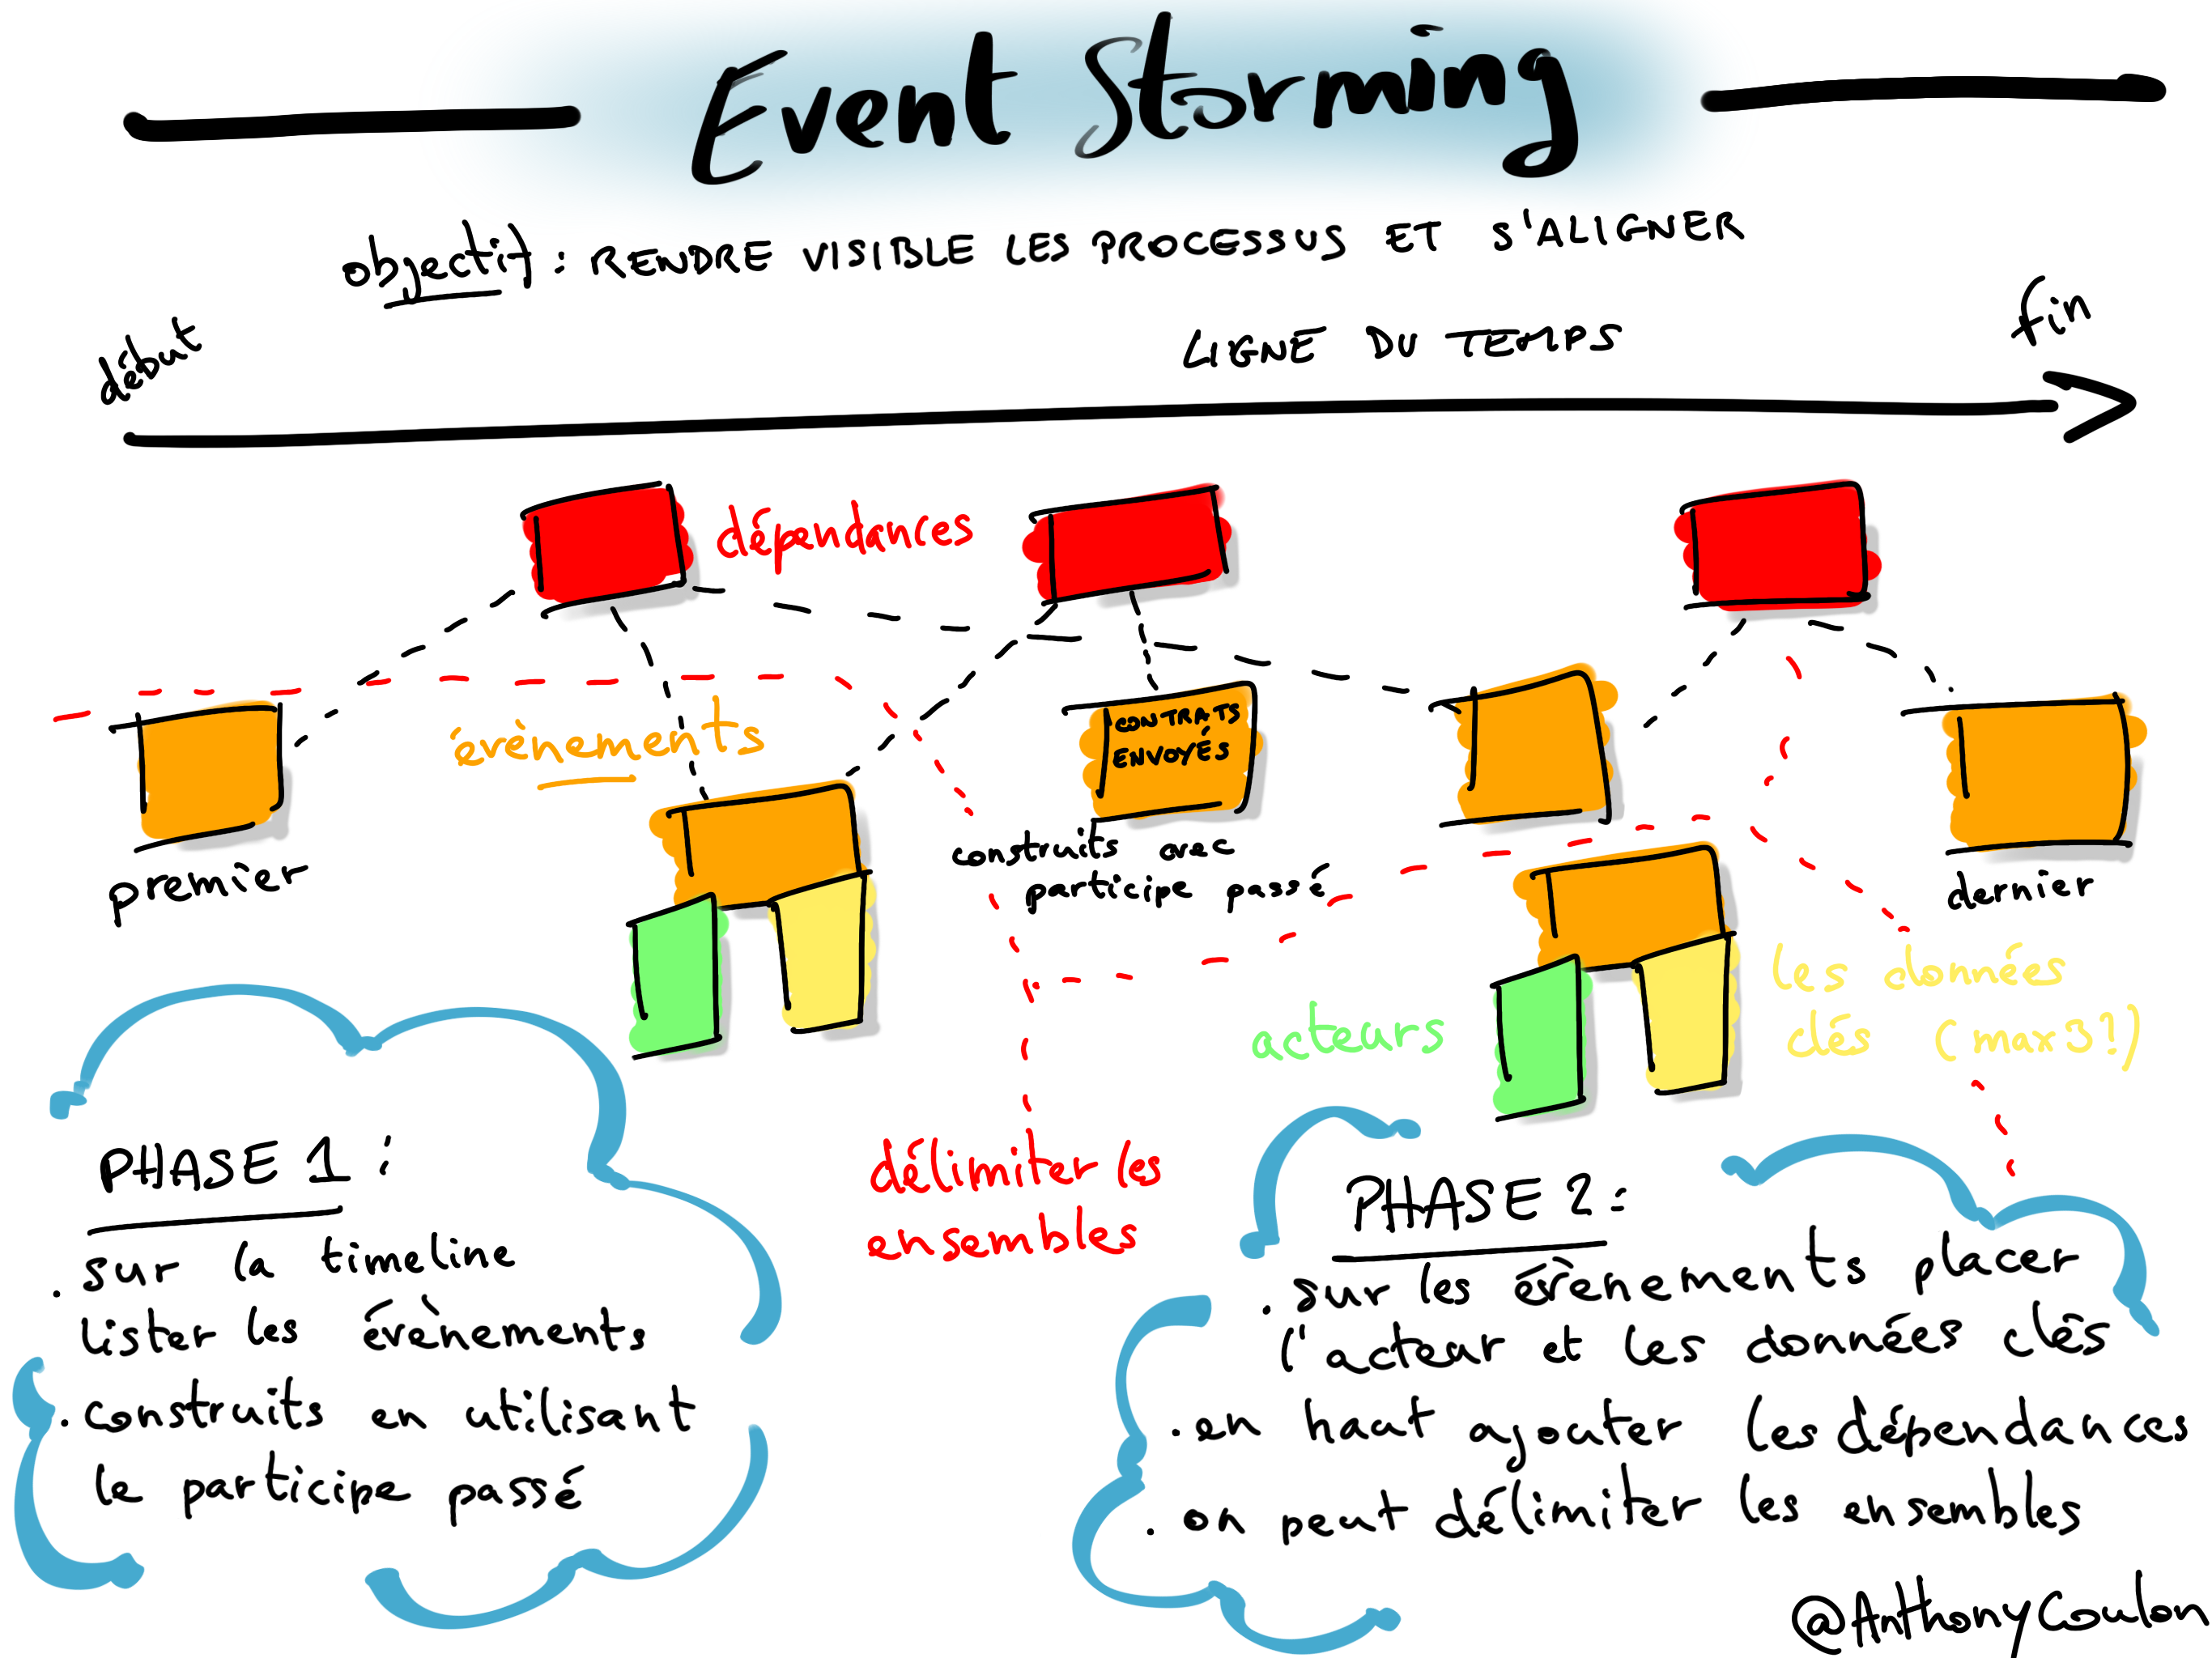 Event Storming
objectif : RENDRE VISIBLE LES PROCESSUS ET S'ALIGNER
début
LIGNE DU TEMPS
fin
dépendances
évènements
CONTRATS
ENVOYÉS
premier
construits avec
participe passé
dernier
les données
clés (max 3!)
acteurs
délimiter les
ensembles
PHASE 1 :
. sur la timeline
lister les évènements
. construits en utilisant
le participe passé
PHASE 2 :
. sur les évènements placer
l'acteur et les données clés
. en haut ajouter les dépendances
. on peut délimiter les ensembles
@AnthonyCoulon